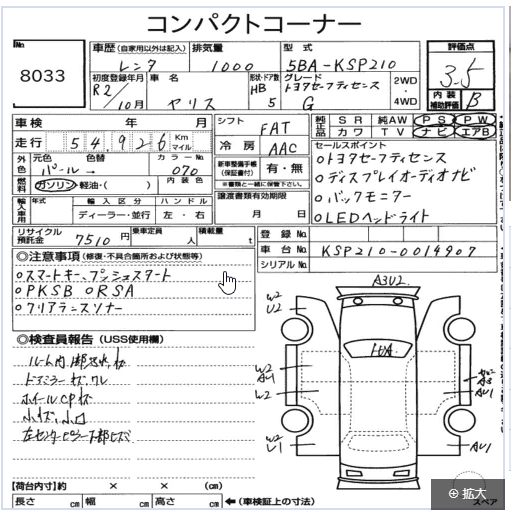 コンパクトコーナー
No. 8033
車歴 (自家用以外は記入) レンタ
排気量 1000
型式 5BA-KSP210
評価点 3.5
内装補助評価 B
初度登録年月 R2/10月
車名 ヤリス
形状・ドア数 HB 5
グレード トヨタセーフティセンス G
2WD・4WD
車検 年 月
走行 54,926 Km マイル
シフト FAT
冷房 AAC
純正品 SR 純AW PS PW
カワ TV ナビ エアB
外色 元色 パール 色替 →
カラーNo. 070
燃料 ガソリン・軽油・( )
内装色
新車整備手帳(保証書付) 有・無
※書類と一緒に保管下さい。
譲渡書類有効期限
月 日
セールスポイント
○トヨタセーフティセンス
○ディスプレイオーディオナビ
○バックモニター
○LEDヘッドライト
輸入車用 年式 輸入区分 ハンドル
ディーラー・並行 左・右
リサイクル預託金 7510円
乗車定員 人
積載量 t
登録No.
車台No. KSP210-0014907
シリアルNo.
◎注意事項 (修復・不具合箇所および状態等)
○スマートキー、プッシュスタート
○PKSB ○RSA
○クリアランスソナー
◎検査員報告 (USS使用欄)
ホイールCP状
A3U2
W2
U2
W2
AU1
W2
W2
U1
AU1
AU1
【荷台内寸】約 × × (cm)
長さ cm 幅 cm 高さ cm
←(車検証上の寸法)
スペア
拡大